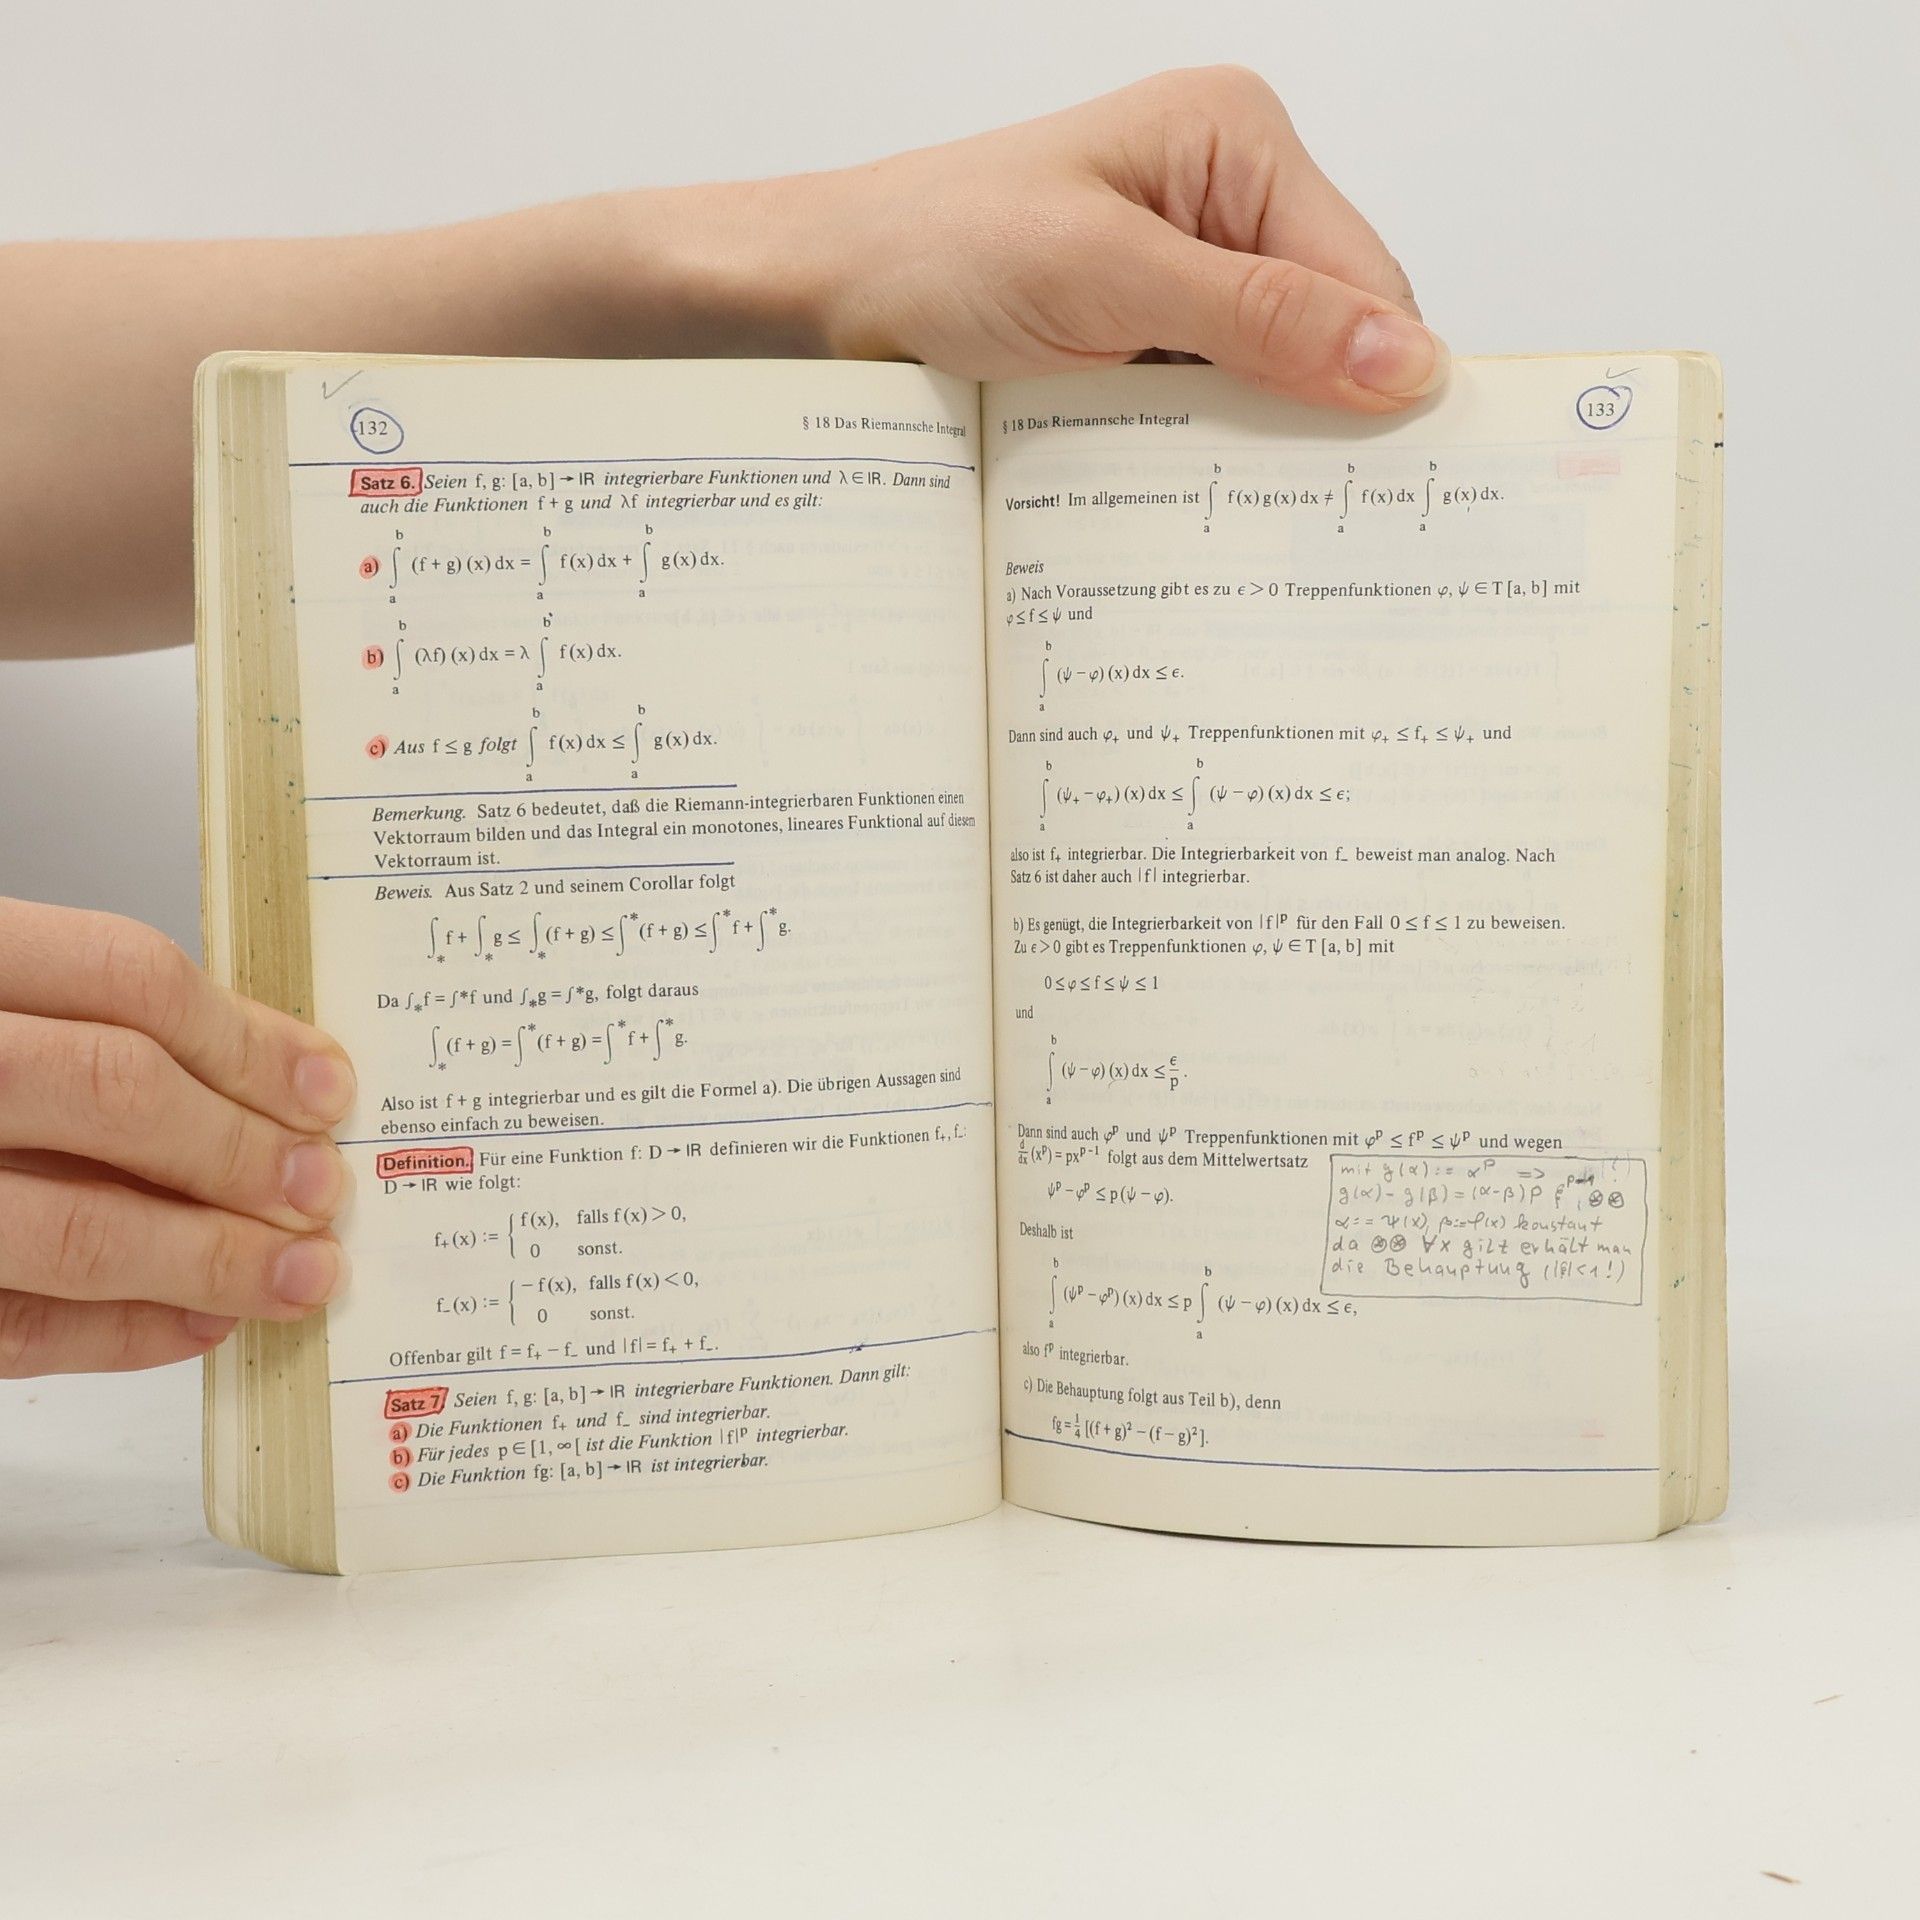 132
§ 18 Das Riemannsche Integral
Satz 6. Seien f, g: [a, b] → IR integrierbare Funktionen und λ ∈ IR. Dann sind
auch die Funktionen f + g und λf integrierbar und es gilt:
a) ∫_a^b (f + g) (x) dx = ∫_a^b f(x) dx + ∫_a^b g(x) dx.
b) ∫_a^b (λf) (x) dx = λ ∫_a^b f(x) dx.
c) Aus f ≤ g folgt ∫_a^b f(x) dx ≤ ∫_a^b g(x) dx.
Bemerkung. Satz 6 bedeutet, daß die Riemann-integrierbaren Funktionen einen
Vektorraum bilden und das Integral ein monotones, lineares Funktional auf diesem
Vektorraum ist.
Beweis. Aus Satz 2 und seinem Corollar folgt
∫_* f + ∫_* g ≤ ∫_* (f + g) ≤ ∫^* (f + g) ≤ ∫^* f + ∫^* g.
Da ∫_* f = ∫^* f und ∫_* g = ∫^* g, folgt daraus
∫_* (f + g) = ∫^* (f + g) = ∫^* f + ∫^* g.
Also ist f + g integrierbar und es gilt die Formel a). Die übrigen Aussagen sind
ebenso einfach zu beweisen.
Definition. Für eine Funktion f: D → IR definieren wir die Funktionen f₊, f₋:
D → IR wie folgt:
f₊(x) := { f(x), falls f(x) > 0,
0 sonst.
f₋(x) := { −f(x), falls f(x) < 0,
0 sonst.
Offenbar gilt f = f₊ − f₋ und |f| = f₊ + f₋.
Satz 7. Seien f, g: [a, b] → IR integrierbare Funktionen. Dann gilt:
a) Die Funktionen f₊ und f₋ sind integrierbar.
b) Für jedes p ∈ [1, ∞[ ist die Funktion |f|ᵖ integrierbar.
c) Die Funktion fg: [a, b] → IR ist integrierbar.
§ 18 Das Riemannsche Integral
133
Vorsicht! Im allgemeinen ist ∫_a^b f(x) g(x) dx ≠ ∫_a^b f(x) dx ∫_a^b g(x) dx.
Beweis
a) Nach Voraussetzung gibt es zu ϵ > 0 Treppenfunktionen φ, ψ ∈ T [a, b] mit
φ ≤ f ≤ ψ und
∫_a^b (ψ − φ) (x) dx ≤ ϵ.
Dann sind auch φ₊ und ψ₊ Treppenfunktionen mit φ₊ ≤ f₊ ≤ ψ₊ und
∫_a^b (ψ₊ − φ₊) (x) dx ≤ ∫_a^b (ψ − φ) (x) dx ≤ ϵ;
also ist f₊ integrierbar. Die Integrierbarkeit von f₋ beweist man analog. Nach
Satz 6 ist daher auch |f| integrierbar.
b) Es genügt, die Integrierbarkeit von |f|ᵖ für den Fall 0 ≤ f ≤ 1 zu beweisen.
Zu ϵ > 0 gibt es Treppenfunktionen φ, ψ ∈ T [a, b] mit
0 ≤ φ ≤ f ≤ ψ ≤ 1
und
∫_a^b (ψ − φ) (x) dx ≤ ϵ/p.
Dann sind auch φᵖ und ψᵖ Treppenfunktionen mit φᵖ ≤ fᵖ ≤ ψᵖ und wegen
d/dx (xᵖ) = pxᵖ⁻¹ folgt aus dem Mittelwertsatz
ψᵖ − φᵖ ≤ p(ψ − φ).
mit g(α) := αᵖ =>
g(α) - g(β) = (α-β) p ξᵖ⁻¹, ⊛⊛
α := ψ(x), β := φ(x) konstant
da ⊛⊛ ∀x gilt erhält man
die Behauptung (|ξ|<1!)
Deshalb ist
∫_a^b (ψᵖ − φᵖ) (x) dx ≤ p ∫_a^b (ψ − φ) (x) dx ≤ ϵ,
also fᵖ integrierbar.
c) Die Behauptung folgt aus Teil b), denn
fg = 1/4 [(f + g)² − (f − g)²].